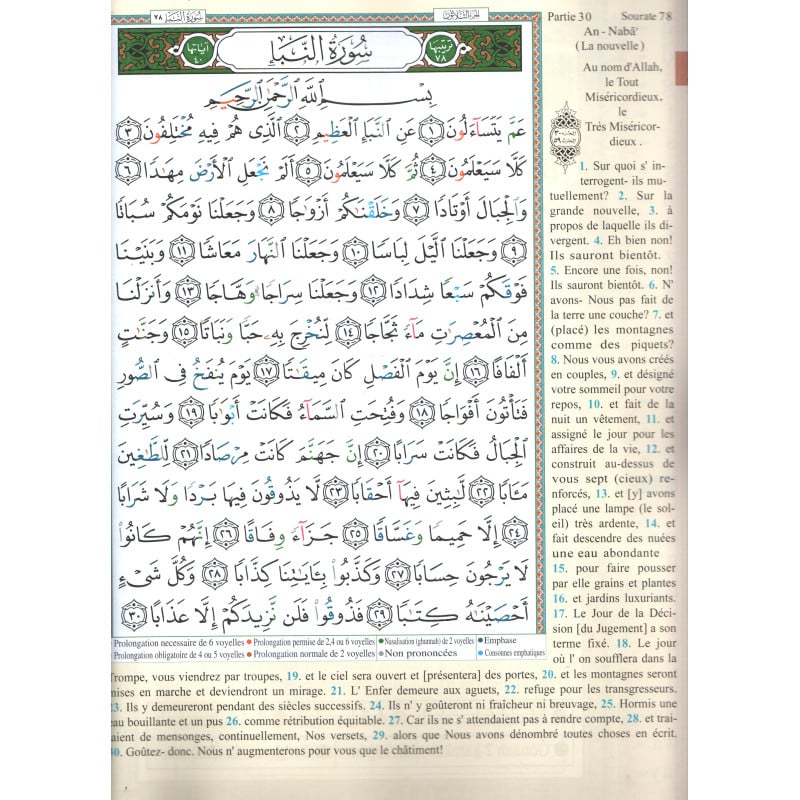 الجزء الثلاثون
سورة النبإ ٧٨
ترتيبها ٧٨
سُورَةُ النَّبَإِ
آياتها ٤٠
بِسْمِ اللَّهِ الرَّحْمَٰنِ الرَّحِيمِ
عَمَّ يَتَسَآءَلُونَ ١ عَنِ النَّبَإِ الْعَظِيمِ ٢ الَّذِى هُمْ فِيهِ مُخْتَلِفُونَ ٣
كَلَّا سَيَعْلَمُونَ ٤ ثُمَّ كَلَّا سَيَعْلَمُونَ ٥ أَلَمْ نَجْعَلِ الْأَرْضَ مِهَٰدًا ٦
وَالْجِبَالَ أَوْتَادًا ٧ وَخَلَقْنَٰكُمْ أَزْوَٰجًا ٨ وَجَعَلْنَا نَوْمَكُمْ سُبَاتًا
٩ وَجَعَلْنَا الَّيْلَ لِبَاسًا ١٠ وَجَعَلْنَا النَّهَارَ مَعَاشًا ١١ وَبَنَيْنَا
فَوْقَكُمْ سَبْعًا شِدَادًا ١٢ وَجَعَلْنَا سِرَاجًا وَهَّاجًا ١٣ وَأَنزَلْنَا
مِنَ الْمُعْصِرَٰتِ مَآءً ثَجَّاجًا ١٤ لِّنُخْرِجَ بِهِۦ حَبًّا وَنَبَاتًا ١٥ وَجَنَّٰتٍ
أَلْفَافًا ١٦ إِنَّ يَوْمَ الْفَصْلِ كَانَ مِيقَٰتًا ١٧ يَوْمَ يُنفَخُ فِى الصُّورِ
فَتَأْتُونَ أَفْوَاجًا ١٨ وَفُتِحَتِ السَّمَآءُ فَكَانَتْ أَبْوَٰبًا ١٩ وَسُيِّرَتِ
الْجِبَالُ فَكَانَتْ سَرَابًا ٢٠ إِنَّ جَهَنَّمَ كَانَتْ مِرْصَادًا ٢١ لِّلطَّٰغِينَ
مَـَٔابًا ٢٢ لَّٰبِثِينَ فِيهَآ أَحْقَابًا ٢٣ لَّا يَذُوقُونَ فِيهَا بَرْدًا وَلَا شَرَابًا
٢٤ إِلَّا حَمِيمًا وَغَسَّاقًا ٢٥ جَزَآءً وِفَاقًا ٢٦ إِنَّهُمْ كَانُوا۟
لَا يَرْجُونَ حِسَابًا ٢٧ وَكَذَّبُوا۟ بِـَٔايَٰتِنَا كِذَّابًا ٢٨ وَكُلَّ شَىْءٍ
أَحْصَيْنَٰهُ كِتَٰبًا ٢٩ فَذُوقُوا۟ فَلَن نَّزِيدَكُمْ إِلَّا عَذَابًا ٣٠
Prolongation necessaire de 6 voyelles Prolongation permise de 2,4 ou 6 voyelles Nasalisation (ghunnah) de 2 voyelles Emphase
Prolongation obligatoire de 4 ou 5 voyelles Prolongation normale de 2 voyelles Non prononcées Consonnes emphatiques
Partie 30 Sourate 78
An - Nabâ'
(La nouvelle)
Au nom d'Allah,
le Tout
Miséricordieux,
le
Très Miséricor-
dieux .
1. Sur quoi s' in-
terrogent- ils mu-
tuellement? 2. Sur la
grande nouvelle, 3. à
propos de laquelle ils di-
vergent. 4. Eh bien non!
Ils sauront bientôt.
5. Encore une fois, non!
Ils sauront bientôt. 6. N'
avons- Nous pas fait de
la terre une couche? 7. et
(placé) les montagnes
comme des piquets?
8. Nous vous avons créés
en couples, 9. et désigné
votre sommeil pour votre
repos, 10. et fait de la
nuit un vêtement, 11. et
assigné le jour pour les
affaires de la vie, 12. et
construit au-dessus de
vous sept (cieux) ren-
forcés, 13. et [y] avons
placé une lampe (le so-
leil) très ardente, 14. et
fait descendre des nuées
une eau abondante
15. pour faire pousser
par elle grains et plantes
16. et jardins luxuriants.
17. Le Jour de la Déci-
sion [du Jugement] a son
terme fixé. 18. Le jour
où l' on soufflera dans la
Trompe, vous viendrez par troupes, 19. et le ciel sera ouvert et [présentera] des portes, 20. et les montagnes seront
mises en marche et deviendront un mirage. 21. L' Enfer demeure aux aguets, 22. refuge pour les transgresseurs.
23. Ils y demeureront pendant des siècles successifs. 24. Ils n' y goûteront ni fraîcheur ni breuvage, 25. Hormis une
eau bouillante et un pus 26. comme rétribution équitable. 27. Car ils ne s' attendaient pas à rendre compte, 28. et trai-
taient de mensonges, continuellement, Nos versets, 29. alors que Nous avons dénombré toutes choses en écrit.
30. Goûtez- donc. Nous n' augmenterons pour vous que le châtiment!